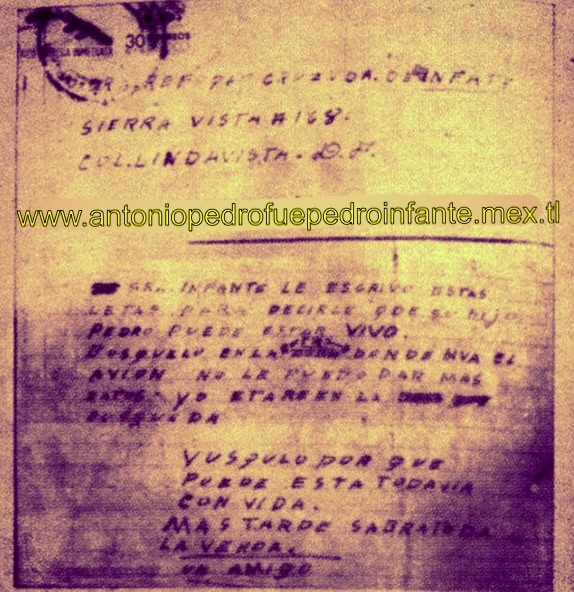 30
CRUZ VDA. DE INFATE
SIERRA VISTA #168.
COL. LINDAVISTA. D.F.
www.antoniopedrofuepedroinfante.mex.tl
SRA. INFANTE LE ESCRIVO ESTAS
LETAS PARA DECIRLE QUE SU HIJO
PEDRO PUEDE ESTAR VIVO.
BUSQUELO EN LA DONDE NVA EL
AVION NO LE PUEDO DAR MAS
DATOS YO ETARE EN LA
BUSQUEDA
VUSQULO POR QUE
PUEDE ESTA TODAVIA
CON VIDA.
MAS TARDE SABRA TODA
LA VERDA.
UN AMIGO